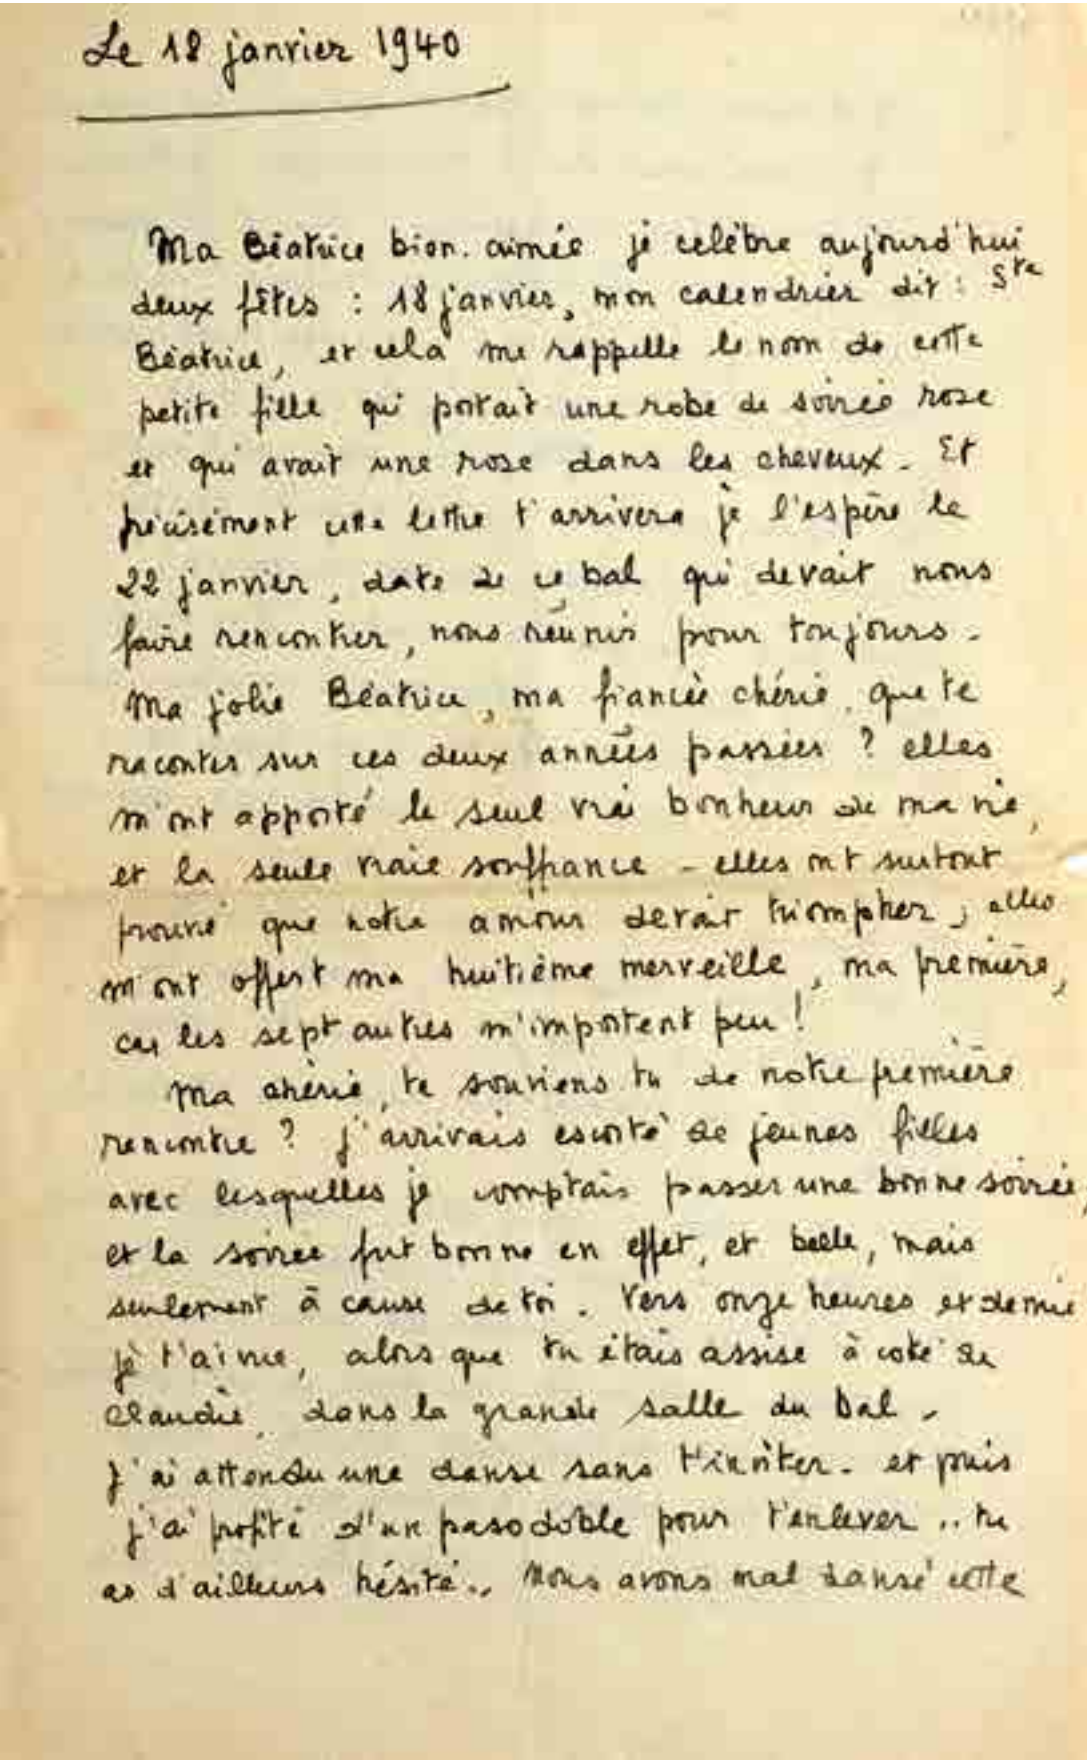 Le 18 janvier 1940
Ma Béatrice bien-aimée je celèbre aujourd'hui
deux fêtes : 18 janvier, mon calendrier dit : Ste
Béatrice, et cela me rappelle le nom de cette
petite fille qui portait une robe de soirée rose
et qui avait une rose dans les cheveux. Et
précisément cette lettre t'arrivera je l'espère le
22 janvier, date de ce bal qui devait nous
faire rencontrer, nous réunir pour toujours.
Ma jolie Béatrice, ma fiancée chérie, que te
raconter sur ces deux années passées ? elles
m'ont apporté le seul vrai bonheur de ma vie,
et la seule vraie souffrance - elles ont surtout
prouvé que notre amour devait triompher, elles
m'ont offert ma huitième merveille, ma première,
car les sept autres m'importent peu !
Ma chérie, te souviens tu de notre première
rencontre ? J'arrivais escorté de jeunes filles
avec lesquelles je comptais passer une bonne soirée,
et la soirée fut bonne en effet, et belle, mais
seulement à cause de toi. Vers onze heures et demie
je t'ai vue, alors que tu étais assise à coté de
Claudie, dans la grande salle du bal.
J'ai attendu une danse sans t'inviter. et puis
j'ai profité d'un pasodoble pour t'enlever .. tu
as d'ailleurs hésité.. Nous avons mal dansé cette